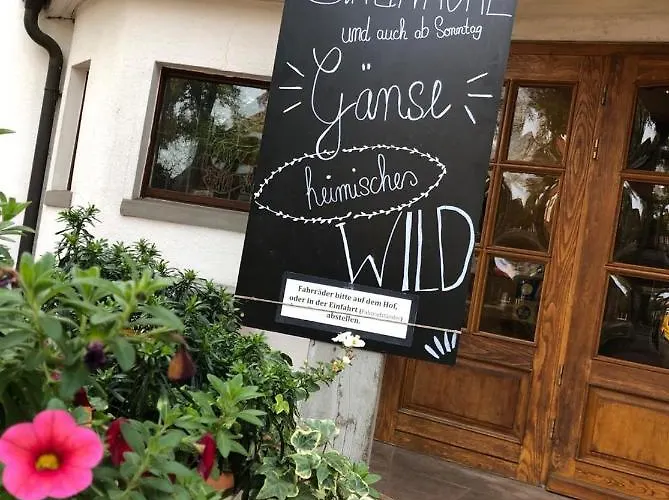 und auch ab Sonntag
Gänse
heimisches
WILD
Fahrräder bitte auf dem Hof,
oder in der Einfahrt (Fahrradständer)
abstellen.